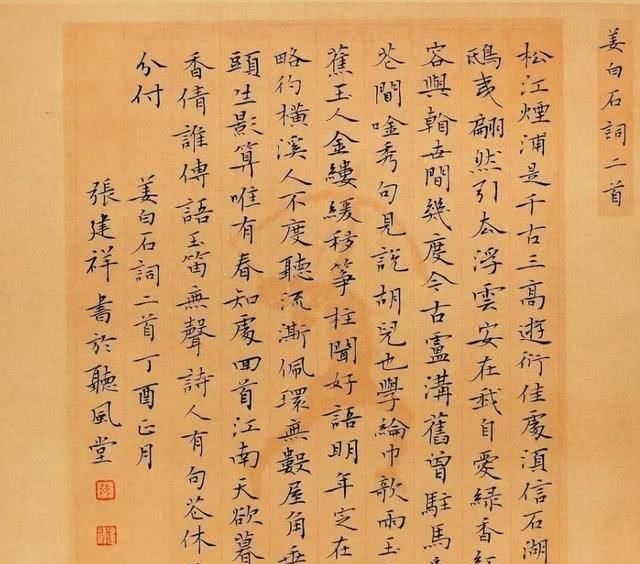 姜白石詞二首
松江煙浦是千古三高遊衍佳處須信石湖
鴟夷翩然引去浮雲安在我自愛綠香紅
容與看世間幾度今古盧溝舊曾駐馬
花間唫秀句見說胡兒也學綸巾欹雨玉
蕉玉人金縷緩移箏柱聞好語明年定在
略彴橫溪人不度聽流澌佩環無數屋角垂
頭生影算唯有春知處回首江南天欲暮
香倩誰傳語玉笛無聲詩人有句花休
分付
姜白石詞二首丁酉正月
張建祥書於聽風堂